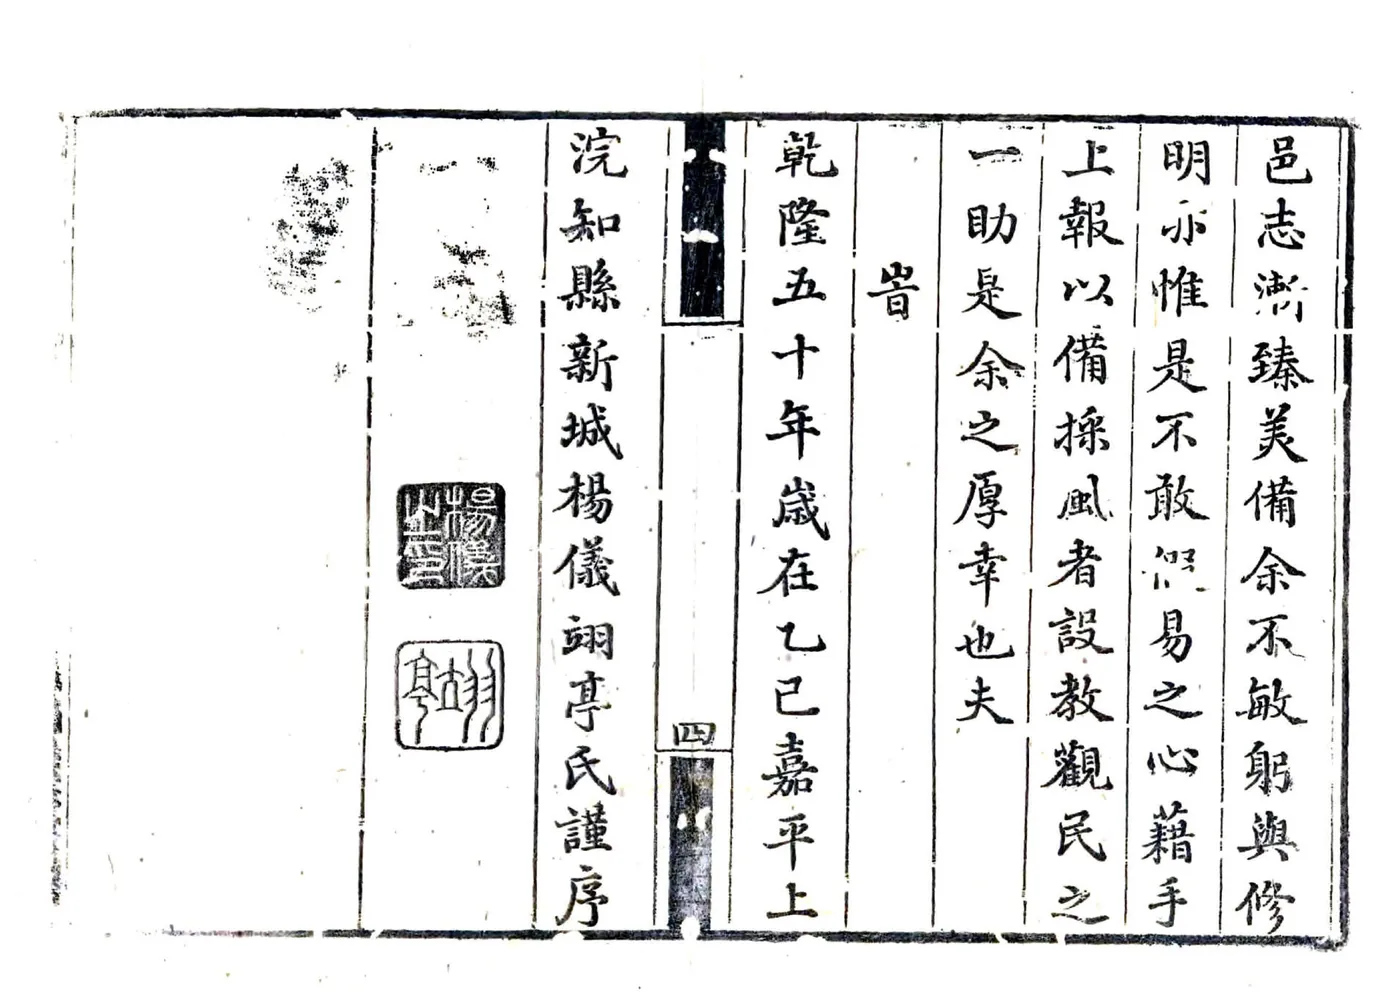 邑志漸臻美備余不敏躬與修
明亦惟是不敢假易之心藉手
上報以備採風者設教觀民之
一助是余之厚幸也夫
旹
乾隆五十年歲在乙巳嘉平上
四
浣知縣新城楊儀翊亭氏謹序
楊儀之印
翊亭